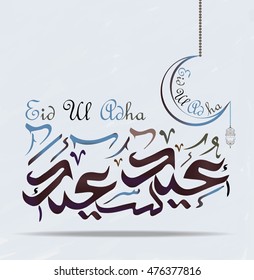 Eid Ul Adha
Eid Ul Adha
عيد سعيد
www.shutterstock.com · 476377816